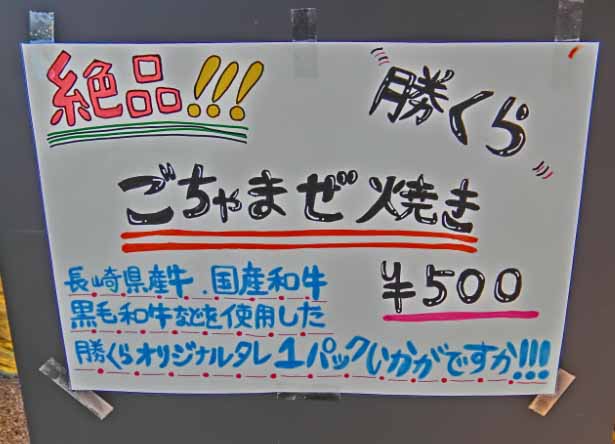 絶品!!!
勝くら
ごちゃまぜ焼き
長崎県産牛、国産和牛
¥500
黒毛和牛などを使用した
勝くらオリジナルタレ 1パックいかがですか!!!